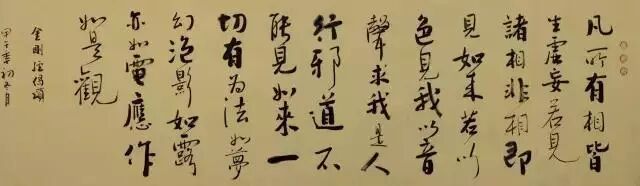 凡所有相皆
是虛妄若見
諸相非相即
見如來若以
色見我以音
聲求我是人
行邪道不
能見如來一
切有為法如夢
幻泡影如露
亦如電應作
如是觀
金剛經偈頌